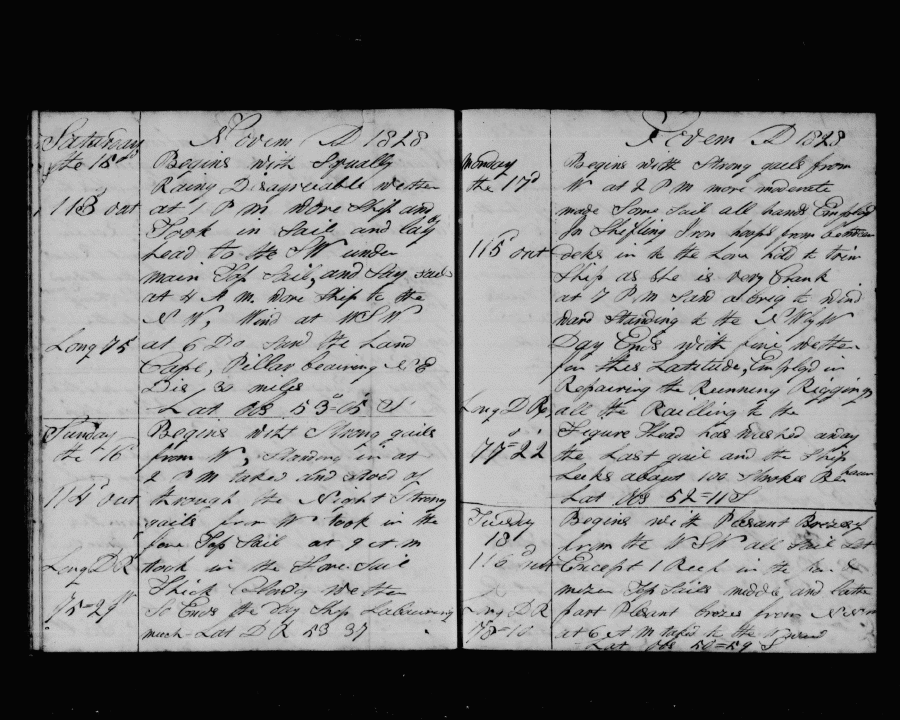 Novem AD 1828
Saturday
the 15d
113 out
Long 75
Begins with Squally
Rainy Disagreeable wether
at 1 P m wore Ship and
Took in Sail and lay
head to the SW under
main Top Sail, and Stay sail
at 4 A m. wore Ship to the
N W, Wind at WSW
at 6 Do saw the Land
Cape, Pillar beairing N E
Dis 30 miles
Lat Obs 53=05 S
Sunday
the 16
114 out
Long D R
75=29
Begins with Strong gails
from W, Standing in at
2 P m taked and Stood of
through the Night Strong
gails from W took in the
fore Top Sail at 9 A m
took in the Fore Sail
Thick Cloudy wether
So Ends the day Ship Labouring
much Lat D R 53 37
Novem AD 1828
Monday
the 17d
115 out
Long D R
77=22
Begins with Strong gails from
W at 2 P M more moderate
made Some Sail all hands Employd
In Shifting Iron hoops from between
deks in to the Lore hold to trim
Ship as She is very Crank
at 7 P m Saw a brig to wind
ward Standing to the NWbyW
Day Ends with fine wether
for this Latitude, Employd in
Repairing the Running Rigging
all the Railling to the
Figure Head has washed away
the Last gail and the Ship
Leeks about 100 Strokes Per hour
Lat Obs 52=11 S
Tuesday
18
116 out
Long D R
78=10
Begins with Plesant Breezes
from the WSW all Sail Set
Except 1 Reef in the
mizen Top Sails middle and latter
part Plesant brezes from
at 6 A m taked to the Wward
Lat Obs 50=59 S